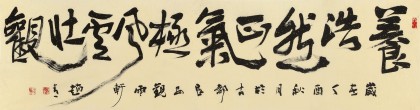 養浩然正氣極風雲壯觀
歲在酉秋月於古都長安觀雨軒